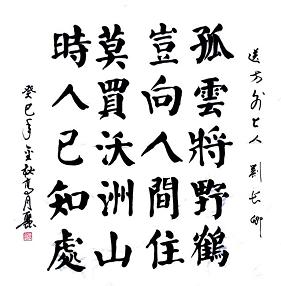 送方外上人 劉長卿
孤雲將野鶴
豈向人間住
莫買沃洲山
時人已知處
癸巳年金秋高月